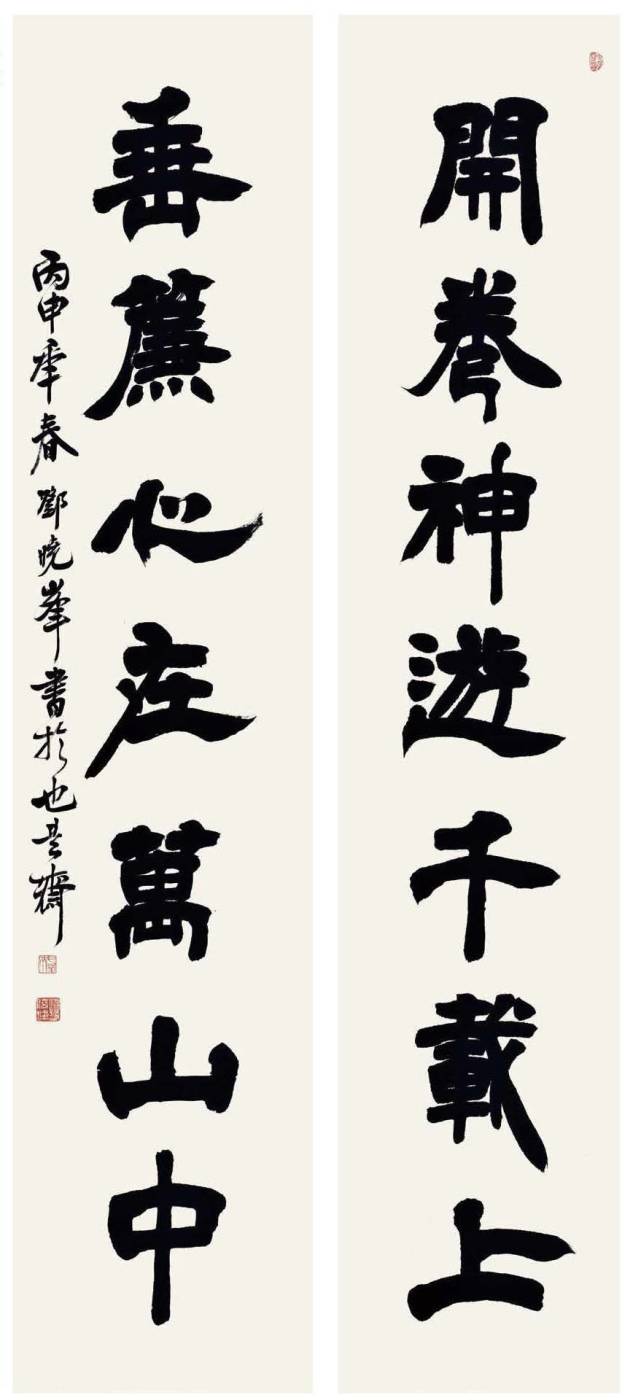 開卷神遊千載上
垂簾心在萬山中
丙申年春鄧曉峯書於也是齋